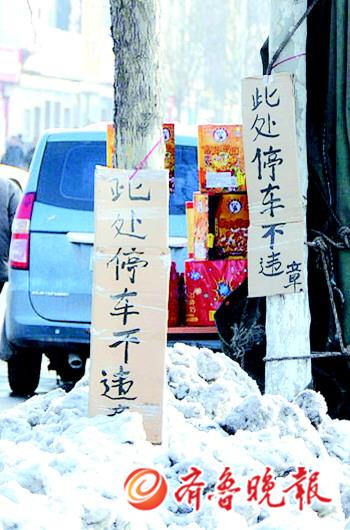 此处停车不违章
此处停车不违章
齐鲁晚报